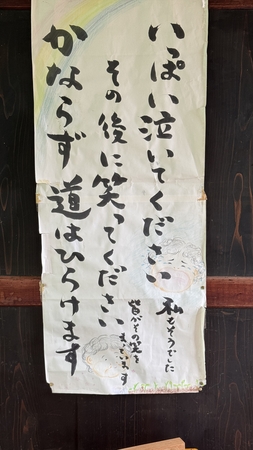 いっぱい泣いてください
私もそうでした
その後に笑ってください
皆がその笑を
まっています
かならず道はひらけます